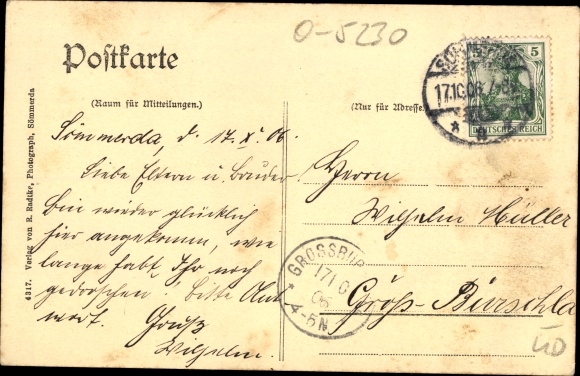 O-5230
Postkarte
(Raum für Mitteilungen.)
(Nur für Adresse.
4317. Verlag von R. Radtke, Photograph, Sömmerda
5
DEUTSCHES REICH
17.10.06
Sömmerda, d. 17. X. 06.
Liebe Eltern u. Bruder
bin wieder glücklich
hier angekommen, wie
lange habt Ihr noch
gedroschen. Bitte Ant
wort. Gruß
Wilhelm.
Herrn
Wilhelm Müller
Groß-Burschla
GROSSBUR
17 10
06
4-5N